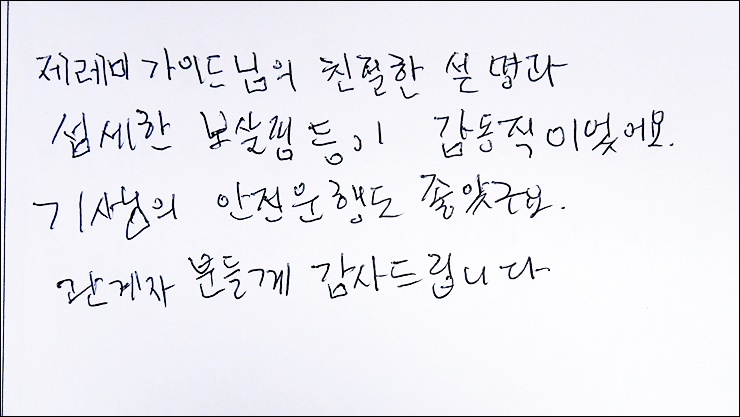 제레미 가이드님의 친절한 설명과
섬세한 보살핌등이 감동적이었어요.
기사님의 안전운행도 좋았구요.
관계자 분들게 감사드립니다